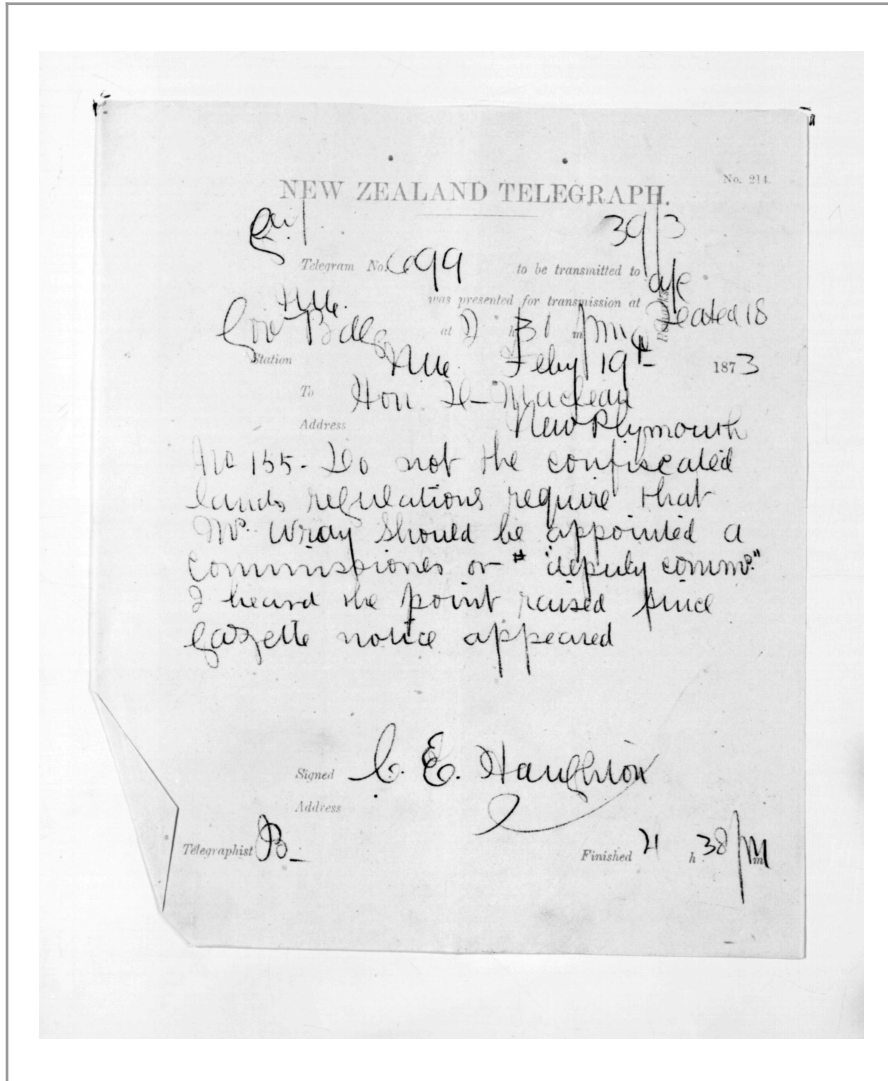 No. 214.
NEW ZEALAND TELEGRAPH.
39/3
Telegram No. 699 to be transmitted to
was presented for transmission at
Gov Bdgs at h 31 m dated 18
Station Feby 19th 1873
To Hon. D Maclean
Address New Plymouth
No 155. Do not the confiscated
lands regulations require that
Mr. Wray should be appointed a
Commissioner or "deputy commr."
I heard the point raised since
Gazette notice appeared
Signed C. E. Haughton
Address
Telegraphist B_
Finished h 38 m